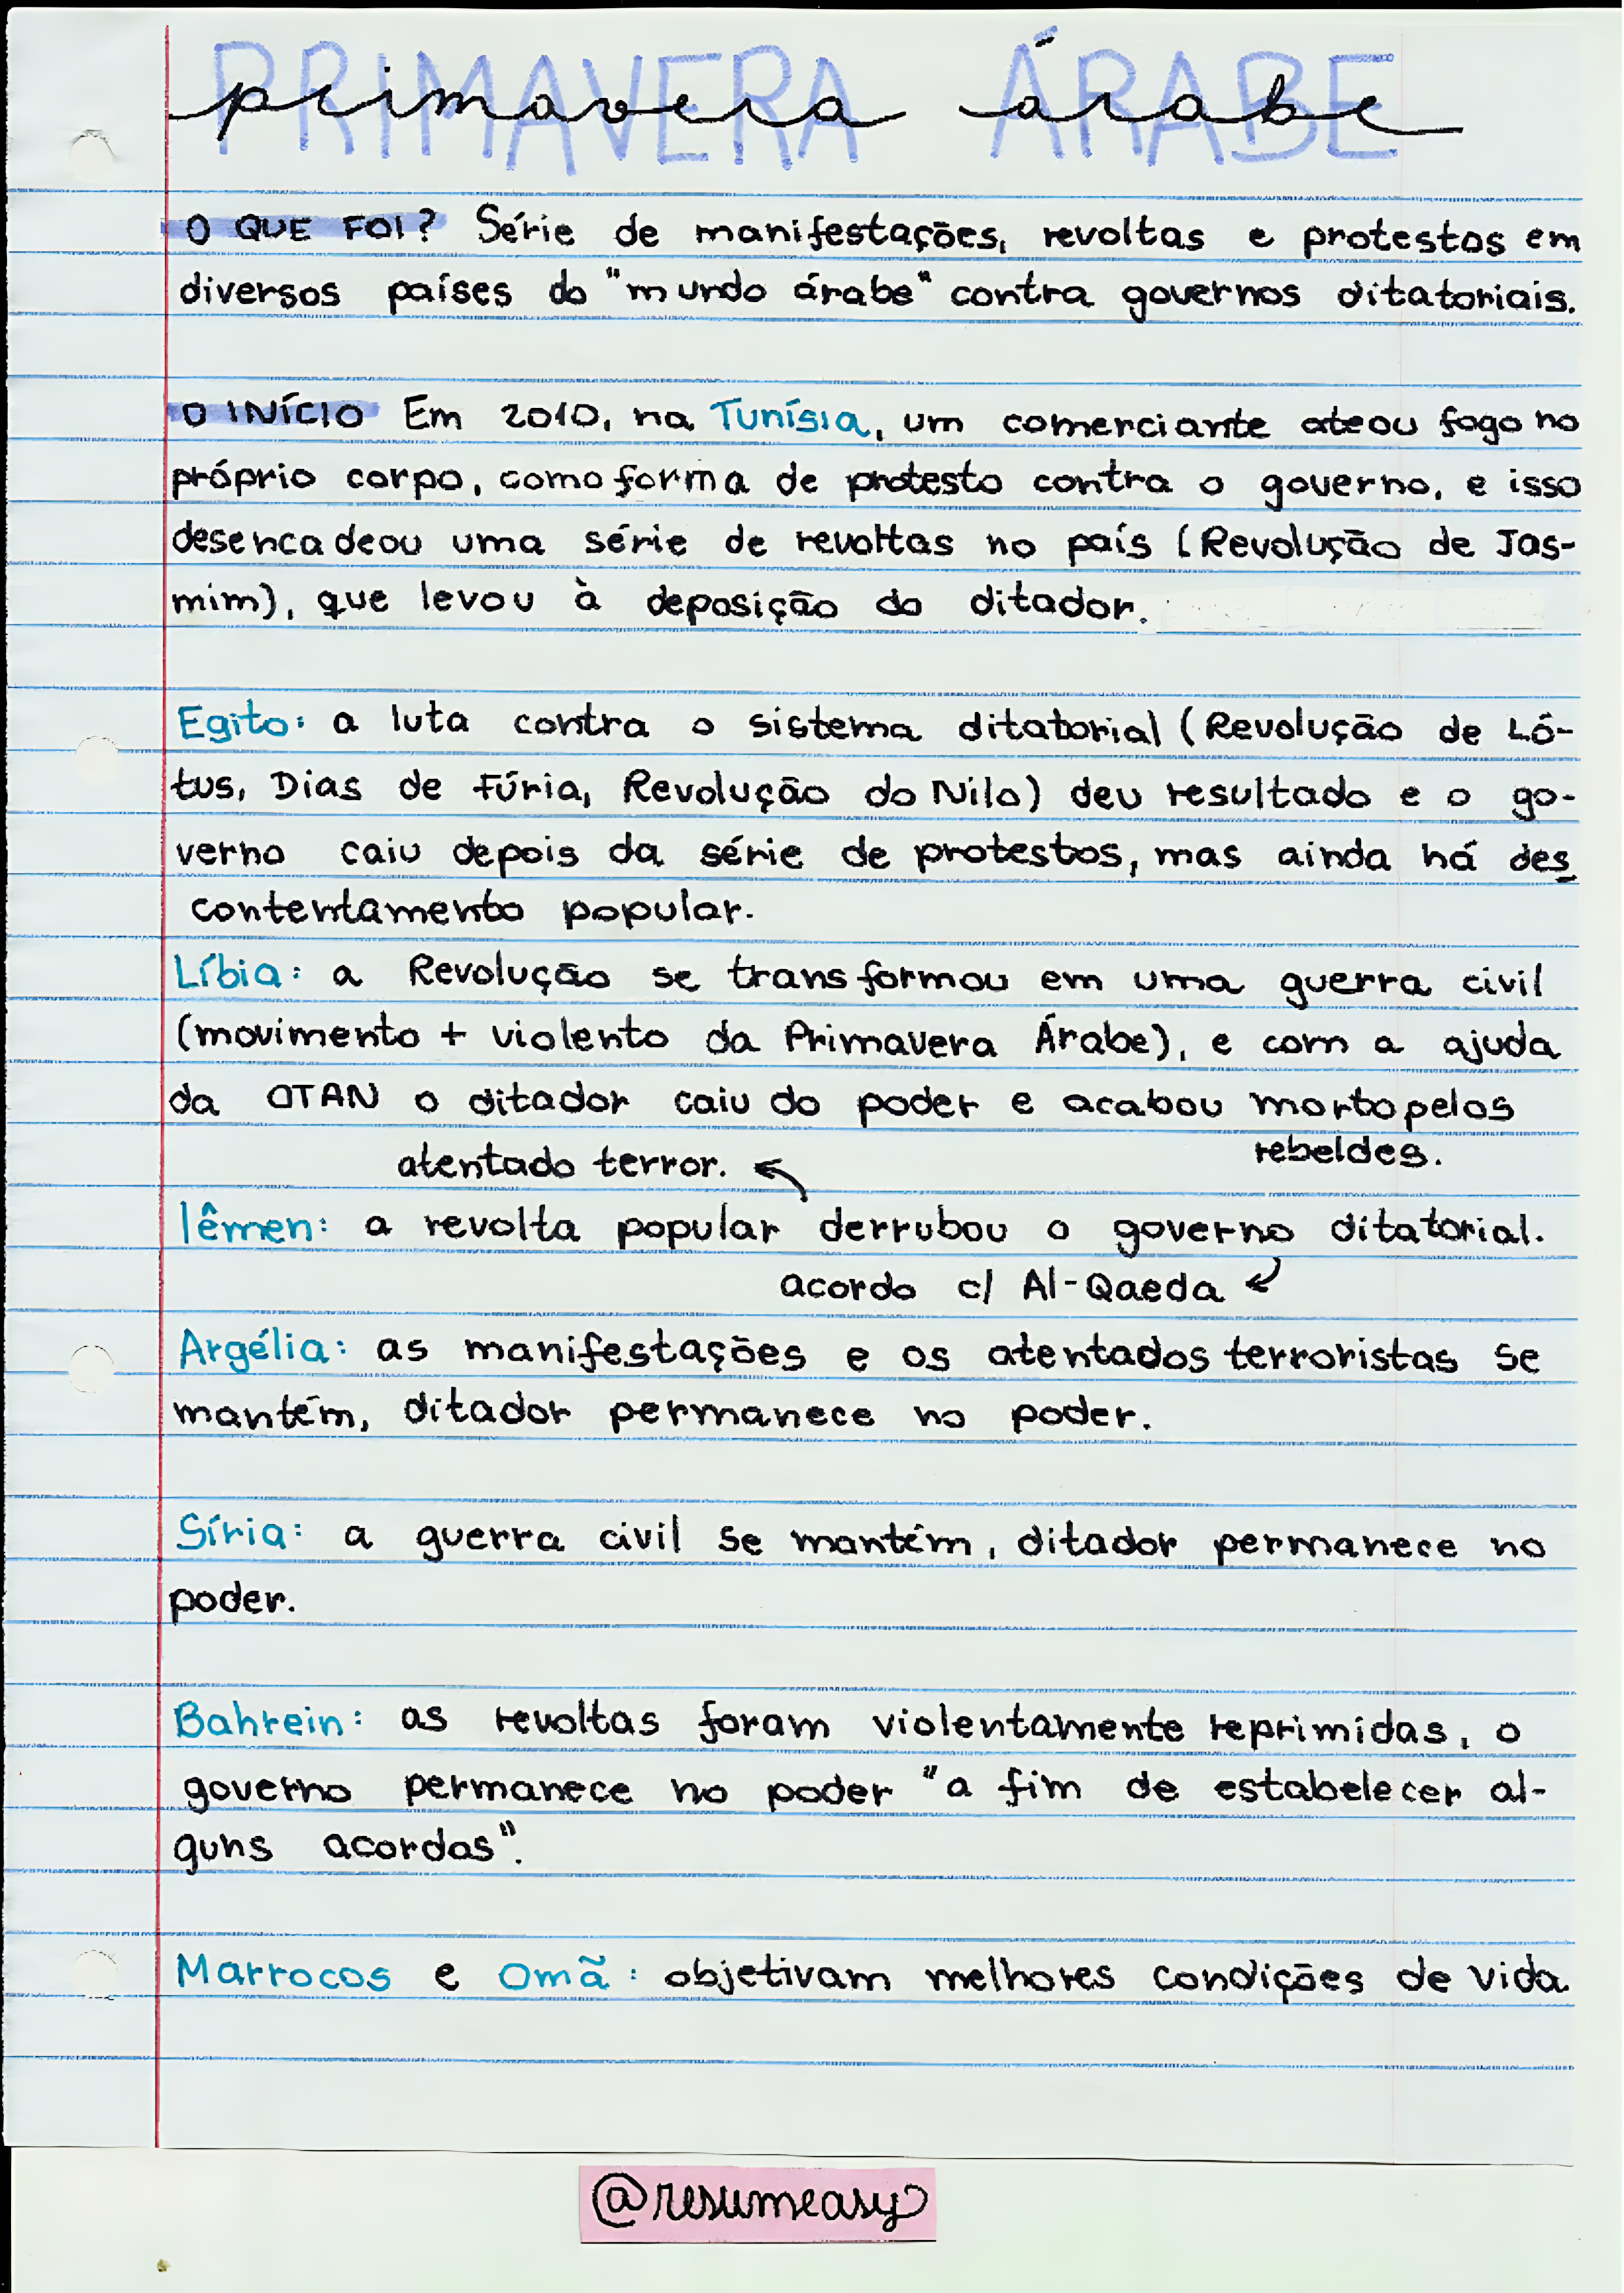 PRIMAVERA ÁRABE
primavera árabe
O QUE FOI? Série de manifestações, revoltas e protestos em
diversos países do "mundo árabe" contra governos ditatoriais.
O INÍCIO Em 2010, na Tunísia, um comerciante ateou fogo no
próprio corpo, como forma de protesto contra o governo, e isso
desencadeou uma série de revoltas no país (Revolução de Jas-
mim), que levou à deposição do ditador.
Egito: a luta contra o sistema ditatorial (Revolução de Ló-
tus, Dias de Fúria, Revolução do Nilo) deu resultado e o go-
verno caiu depois da série de protestos, mas ainda há des
contentamento popular.
Líbia: a Revolução se transformou em uma guerra civil
(movimento + violento da Primavera Árabe), e com a ajuda
da OTAN o ditador caiu do poder e acabou morto pelos
rebeldes.
atentado terror.
Iêmen: a revolta popular derrubou o governo ditatorial.
acordo c/ Al-Qaeda
Argélia: as manifestações e os atentados terroristas se
mantém, ditador permanece no poder.
Síria: a guerra civil se mantém, ditador permanece no
poder.
Bahrein: as revoltas foram violentamente reprimidas, o
governo permanece no poder "a fim de estabelecer al-
guns acordos".
Marrocos e Omã: objetivam melhores condições de vida
@resumeasy